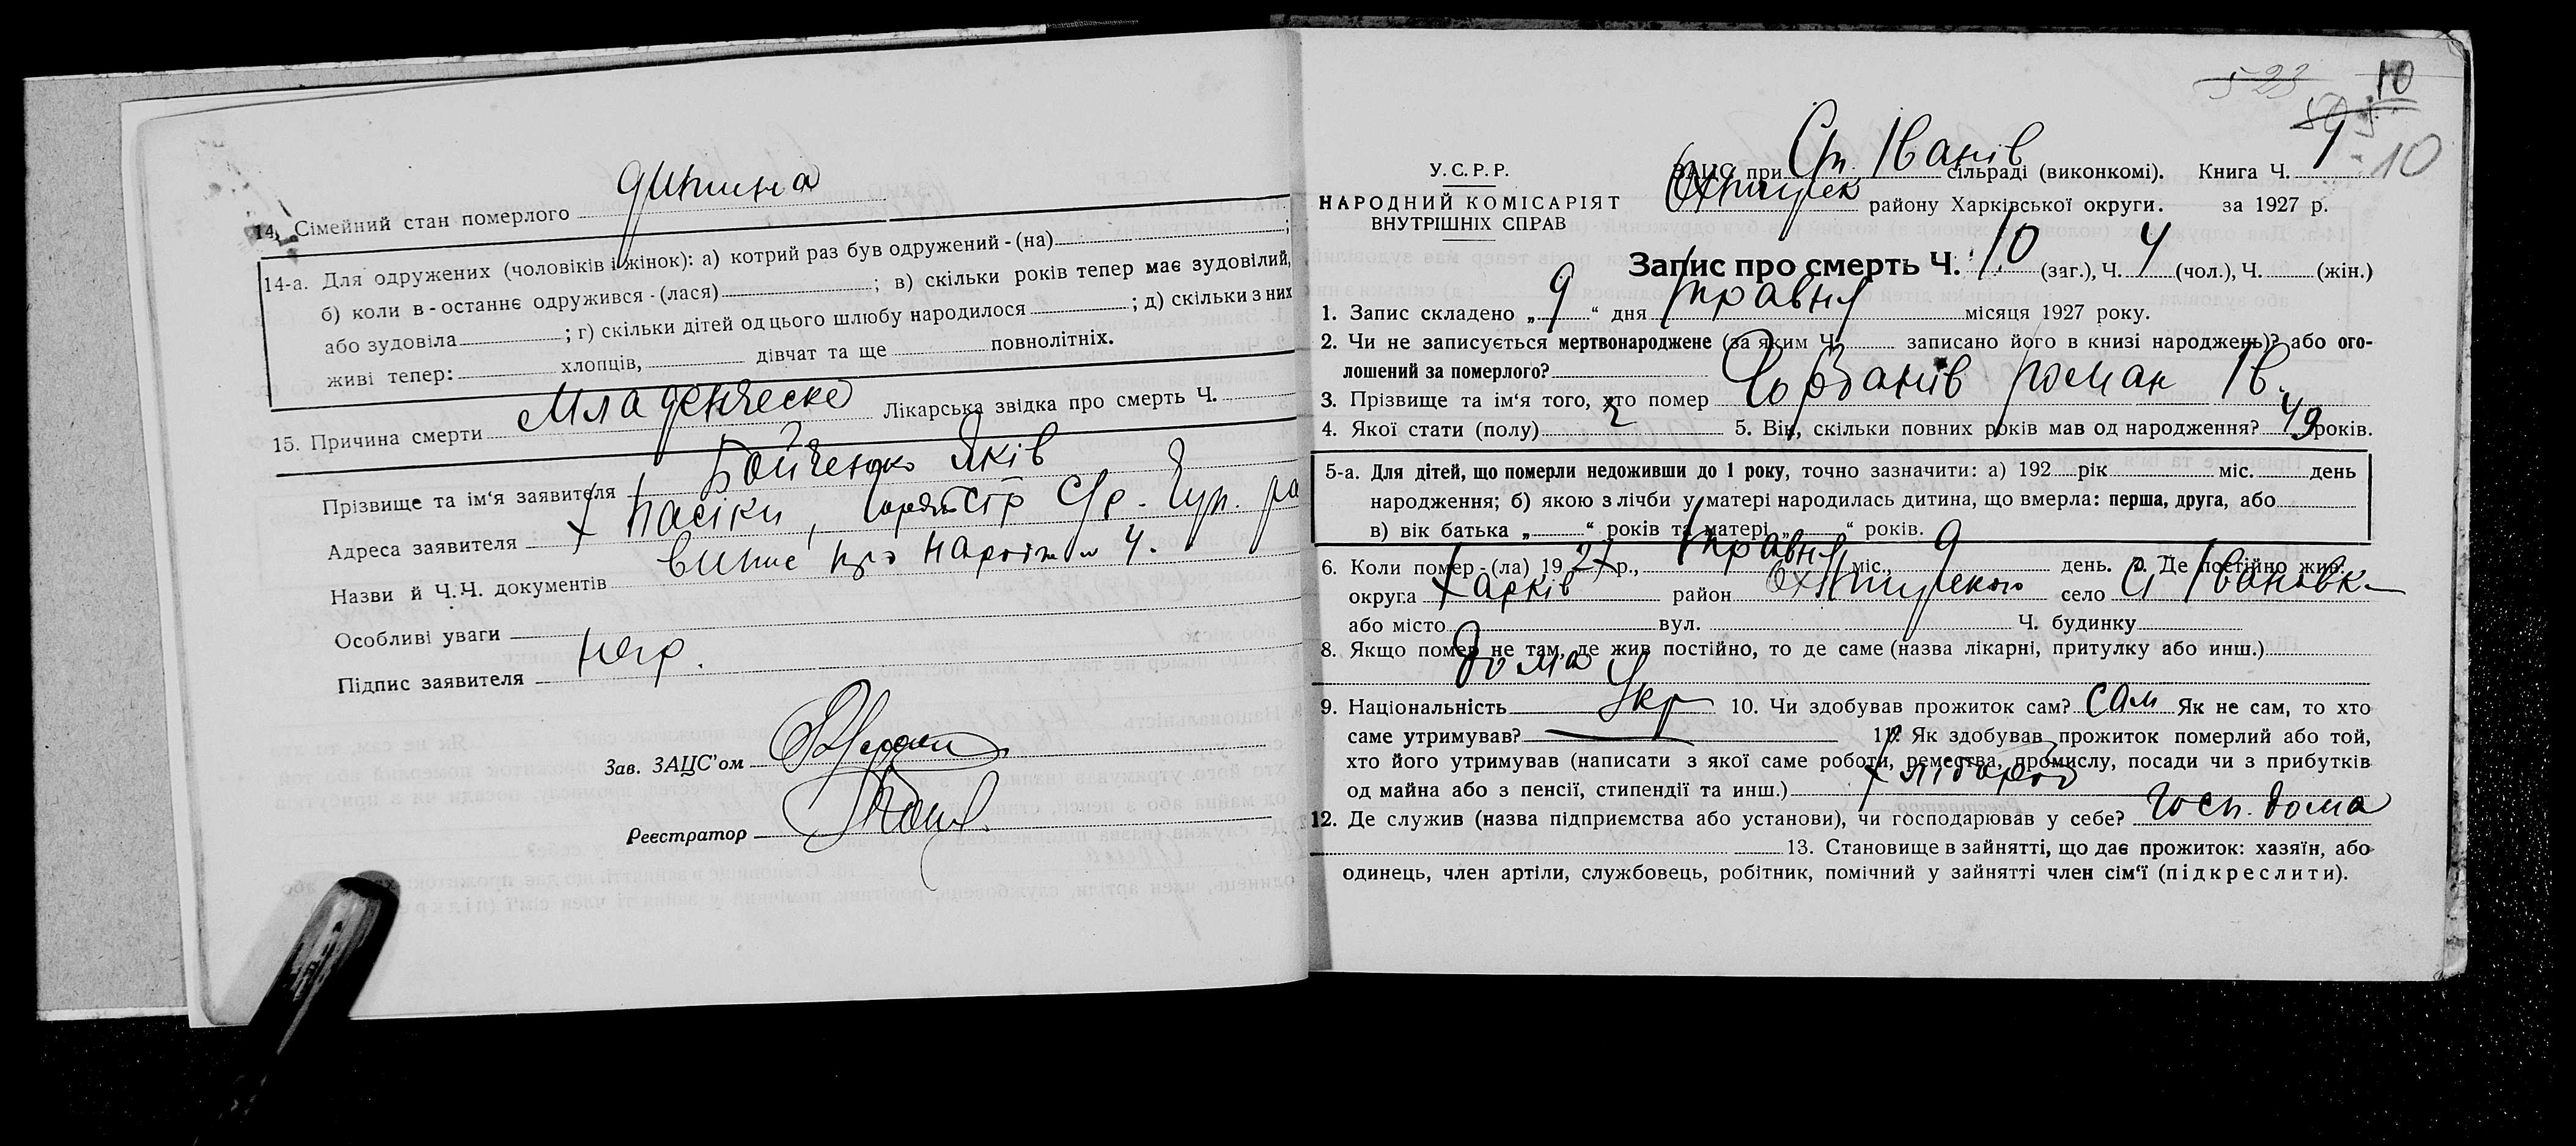 14. Сімейний стан померлого дитина
14-а. Для одружених (чоловіків і жінок): а) котрий раз був одружений - (на) ;
б) коли в - останнє одружився - (лася) ; в) скільки років тепер має зудовілий,
або зудовіла ; г) скільки дітей од цього шлюбу народилося ; д) скільки з них
живі тепер: хлопців, дівчат та ще повнолітніх.
15. Причина смерти Младенческе Лікарська звідка про смерть Ч.
Прізвище та ім'я заявителя Бойченко Яків
Адреса заявителя х Пасіки,
Назви й Ч.Ч. документів випис про народж Ч.
Особливі уваги
Підпис заявителя негр.
Зав. ЗАЦС'ом
Реєстратор
523 10
У. С. Р. Р.
НАРОДНИЙ КОМІСАРІЯТ
ВНУТРІШНІХ СПРАВ
ЗАЦС при Ст. Іванів сільраді (виконкомі). Книга Ч. 1 10
Охтирек району Харківської округи. за 1927 р.
Запис про смерть Ч. 10 (заг.), Ч. 4 (чол.), Ч. (жін.)
1. Запис складено „ 9 “ дня травня місяця 1927 року.
2. Чи не записується мертвонароджене (за яким Ч. записано його в книзі народжень)? або ого-
лошений за померлого?
3. Прізвище та ім'я того, хто помер Горбанів Роман Ів.
4. Якої стати (полу) ч 5. Вік, скільки повних років мав од народження? 49 років.
5-а. Для дітей, що померли недоживши до 1 року, точно зазначити: а) 192 рік міс. день
народження; б) якою з лічби у матері народилась дитина, що вмерла: перша, друга, або
в) вік батька „ “ років та матері „ “ років.
6. Коли помер - (ла) 1927 р., травня міс., 9 день. 7. Де постійно жив:
округа Харків район Охтирского село Ст Івановк
або місто вул. Ч. будинку
8. Якщо помер не там, де жив постійно, то де саме (назва лікарні, притулку або инш.)
дома
9. Національність Укр 10. Чи здобував прожиток сам? сам Як не сам, то хто
саме утримував? — 11. Як здобував прожиток померлий або той,
хто його утримував (написати з якої саме роботи, ремества, промислу, посади чи з прибутків
од майна або з пенсії, стипендії та инш.) хлібороб
12. Де служив (назва підприємства або установи), чи господарював у себе? Госп. дома
13. Становище в зайнятті, що дає прожиток: хазяїн, або
одинець, член артіли, службовець, робітник, помічний у зайнятті член сім'ї (підкреслити).